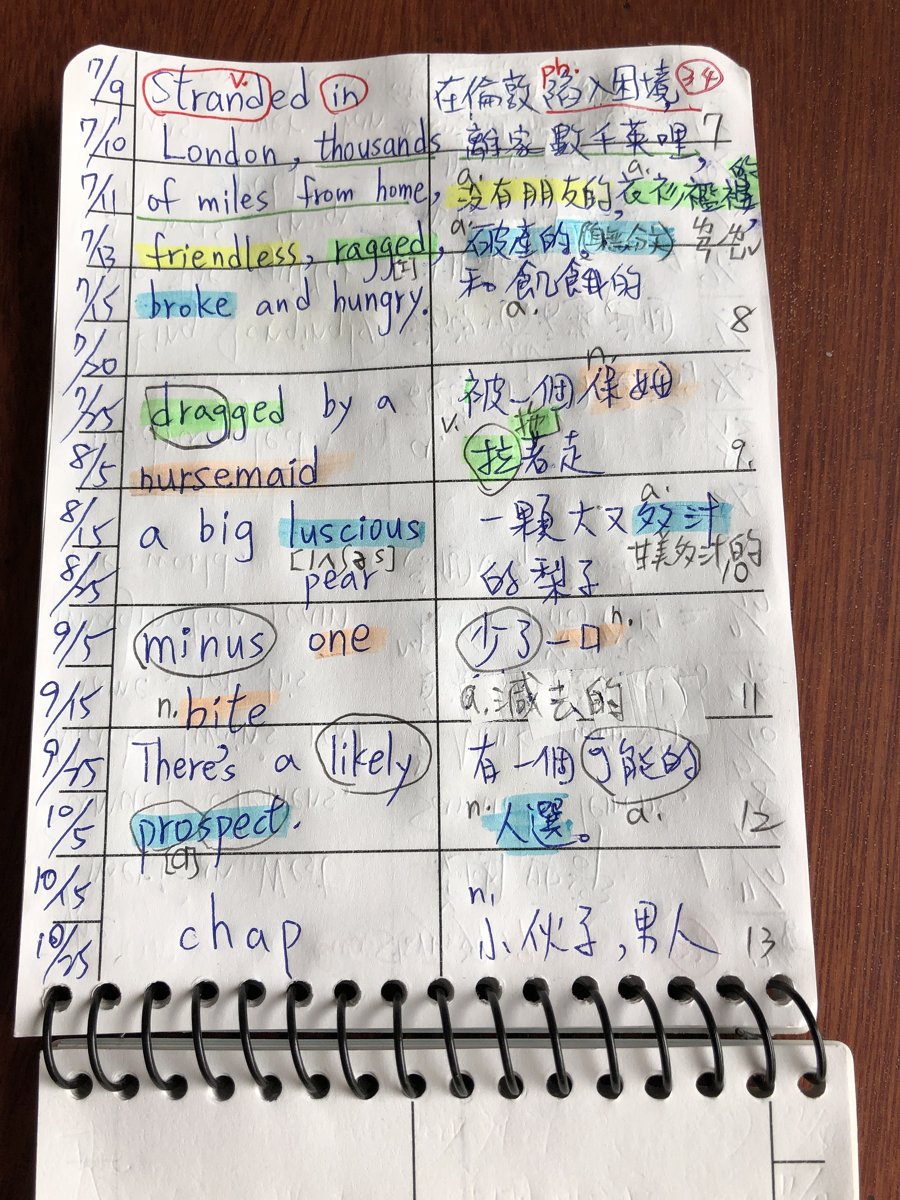 7/9
7/10
7/11
7/13
7/15
7/20
7/25
8/5
8/15
8/25
9/5
9/15
9/25
10/5
10/15
10/25
v.
Stranded in
London, thousands
of miles from home,
friendless, ragged,
[ɪ]
broke and hungry.
ph.
在倫敦陷入困境, 34
離家數千英哩, 7
a. a. 的
沒有朋友的,衣衫襤褸,
a. 破產的。
ㄌㄢˊ ㄌㄩˇ
和飢餓的
a.
8
dragged by a
nursemaid
n.
被一個保姆
v. 拖
拉著走 9.
a big luscious
[lʌʃəs]
pear
a.
一顆大又多汁
甘美多汁的
的梨子 10
minus one
n. bite
少了一口 n.
a. 減去的 11
There's a likely
prospect.
[ɑ]
有一個可能的
n. 人選。 a. 12
chap
n.
小伙子,男人 13